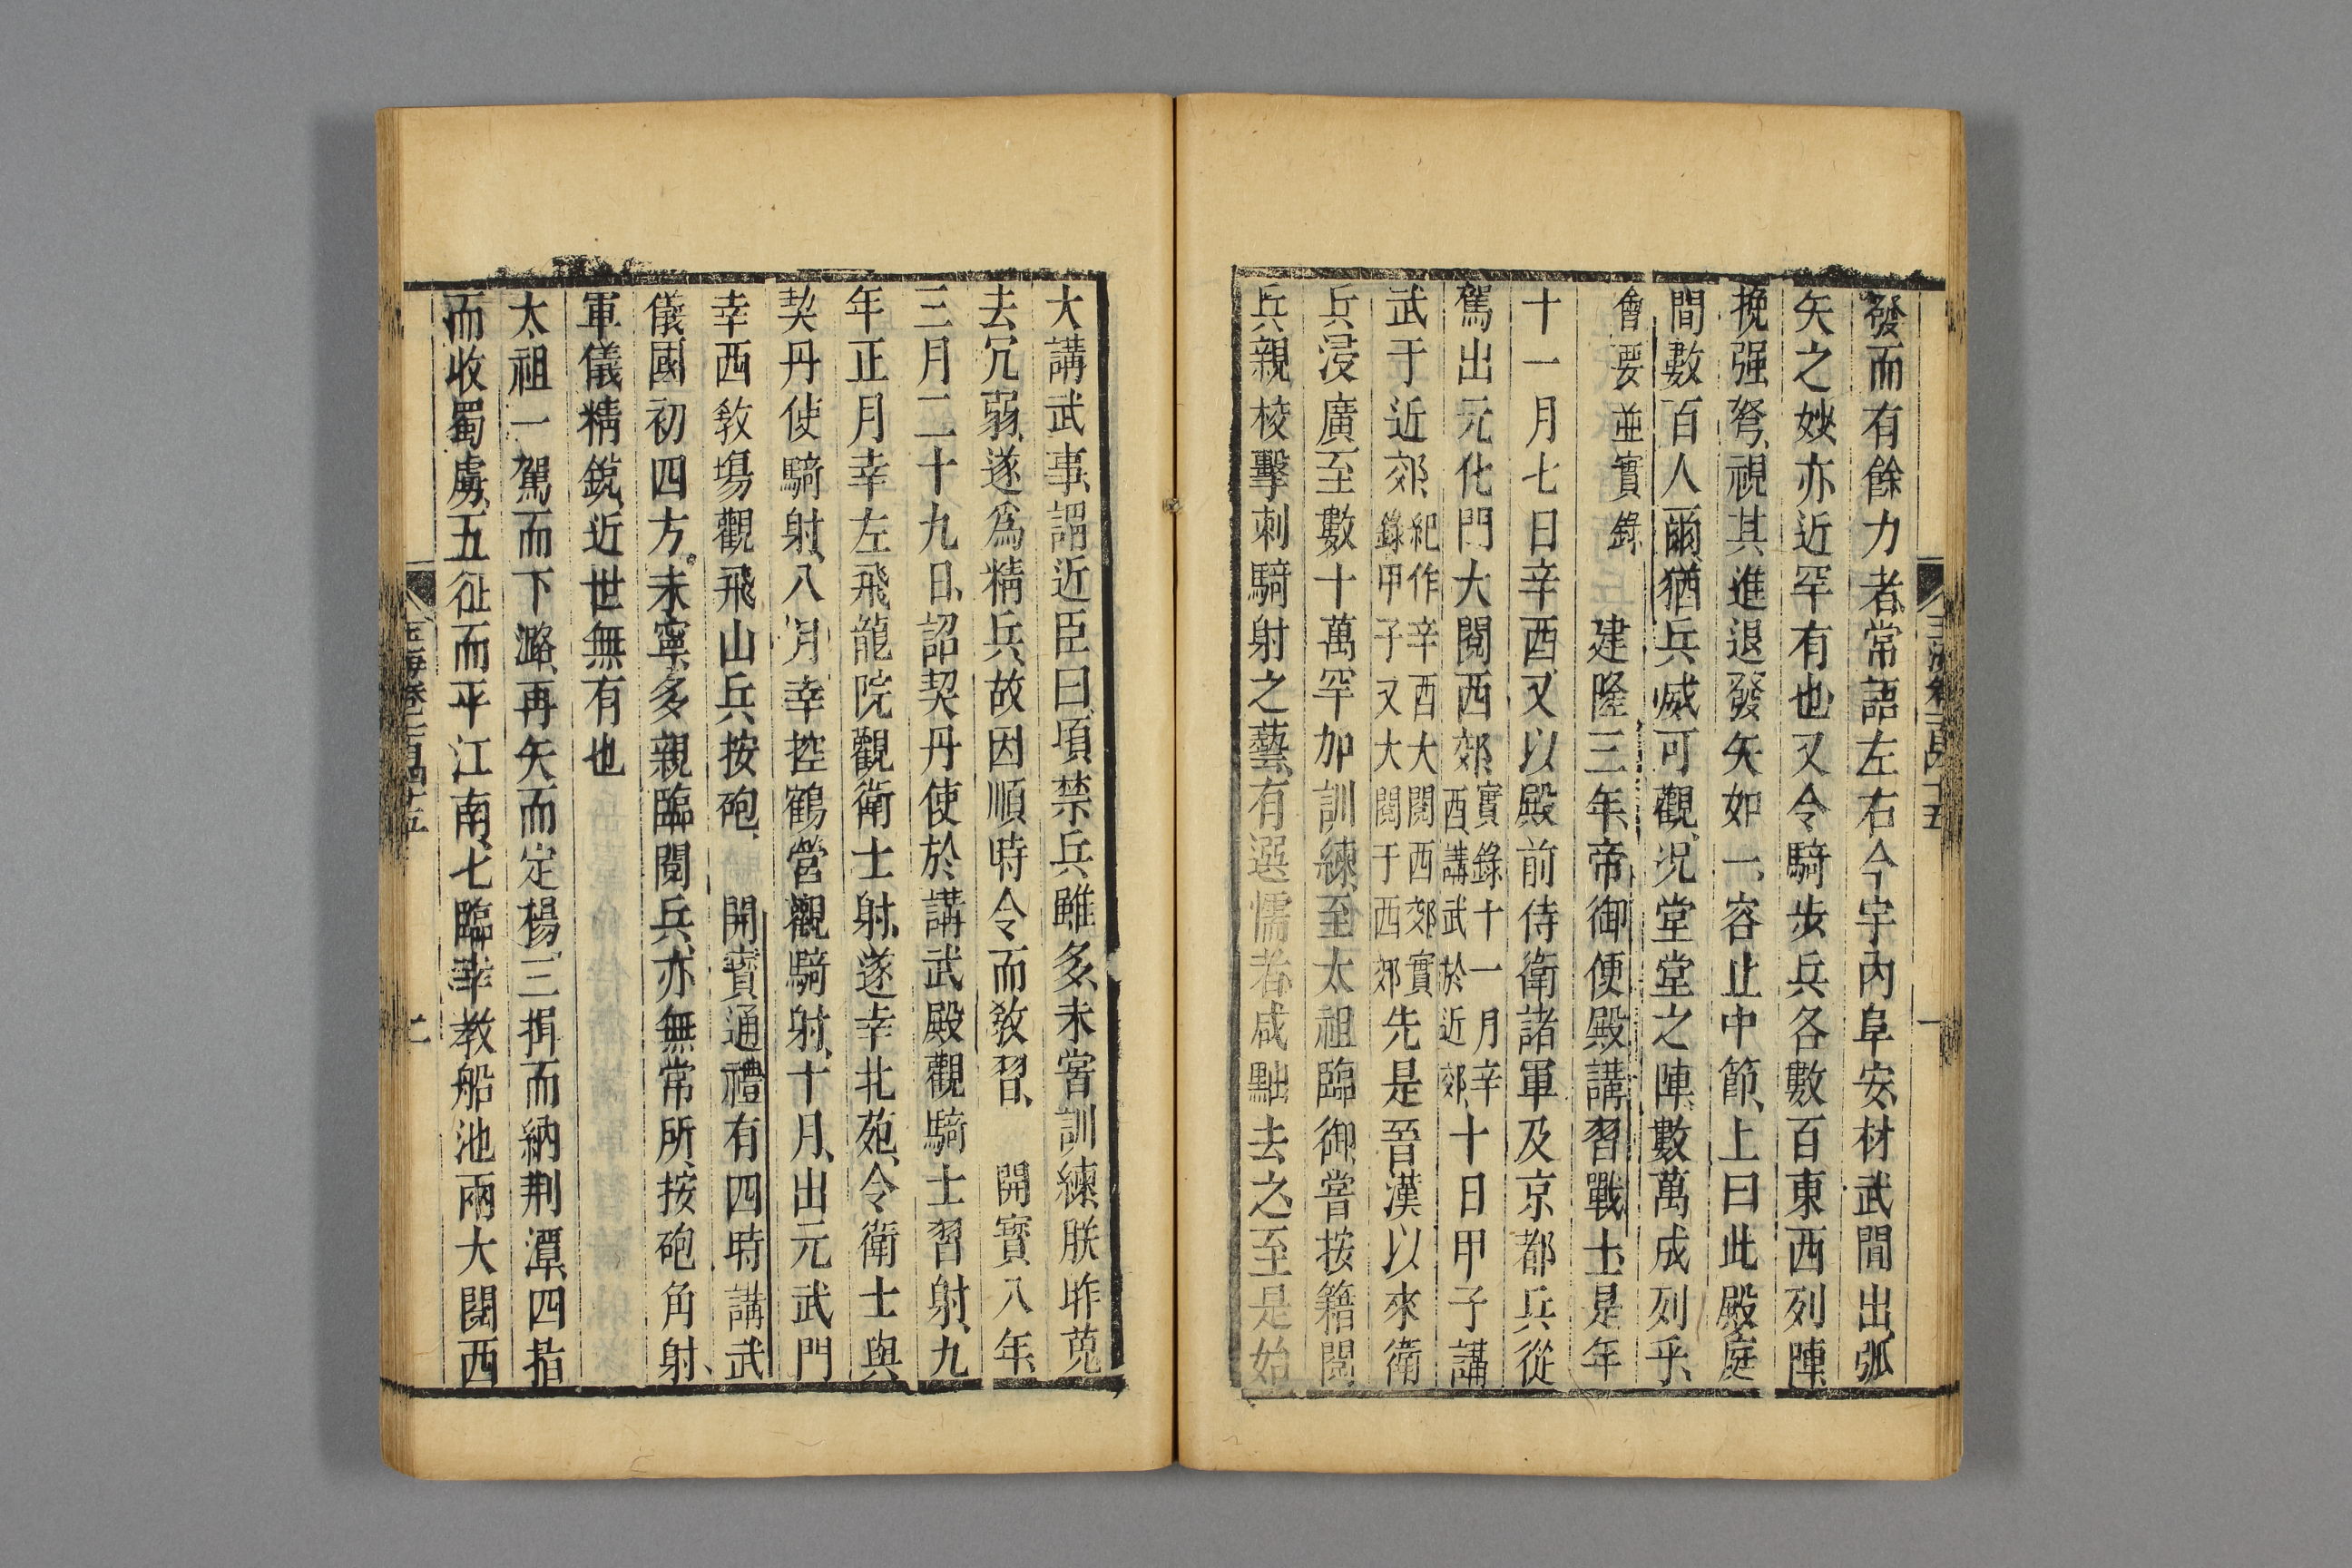 發而有餘力者常語左右今宇內阜安材武間出弧
矢之妙亦近罕有也又令騎步兵各數百東西列陣
挽强弩視其進退發矢如一容止中節上曰此殿庭
間數百人爾猶兵威可觀況堂堂之陣數萬成列乎
會要並實錄　建隆三年帝御便殿講習戰士是年
十一月七日辛酉又以殿前侍衛諸軍及京都兵從
駕出元化門大閱西郊實錄十一月辛酉講武於近郊十日甲子講
武于近郊紀作辛酉大閱西郊實錄甲子又大閱于西郊先是晉漢以來衛
兵浸廣至數十萬罕加訓練至太祖臨御嘗按籍閱
兵親校擊刺騎射之藝有選懦者咸黜去之至是始
大講武事謂近臣曰頃禁兵雖多未嘗訓練朕昨蒐
去冗弱遂爲精兵故因順時令而敎習　開寶八年
三月二十九日詔契丹使於講武殿觀騎士習射九
年正月幸左飛龍院觀衛士射遂幸北苑令衛士與
契丹使騎射八月幸控鶴營觀騎射十月出元武門
幸西敎場觀飛山兵按砲　開寶通禮有四時講武
儀國初四方未寧多親臨閱兵亦無常所按砲角射
軍儀精銳近世無有也
太祖一駕而下潞再矢而定楊三揖而納荆潭四指
而收蜀虜五征而平江南七臨幸教船池兩大閱西
玉海卷一百四十五
一
玉海卷一百四十五
二